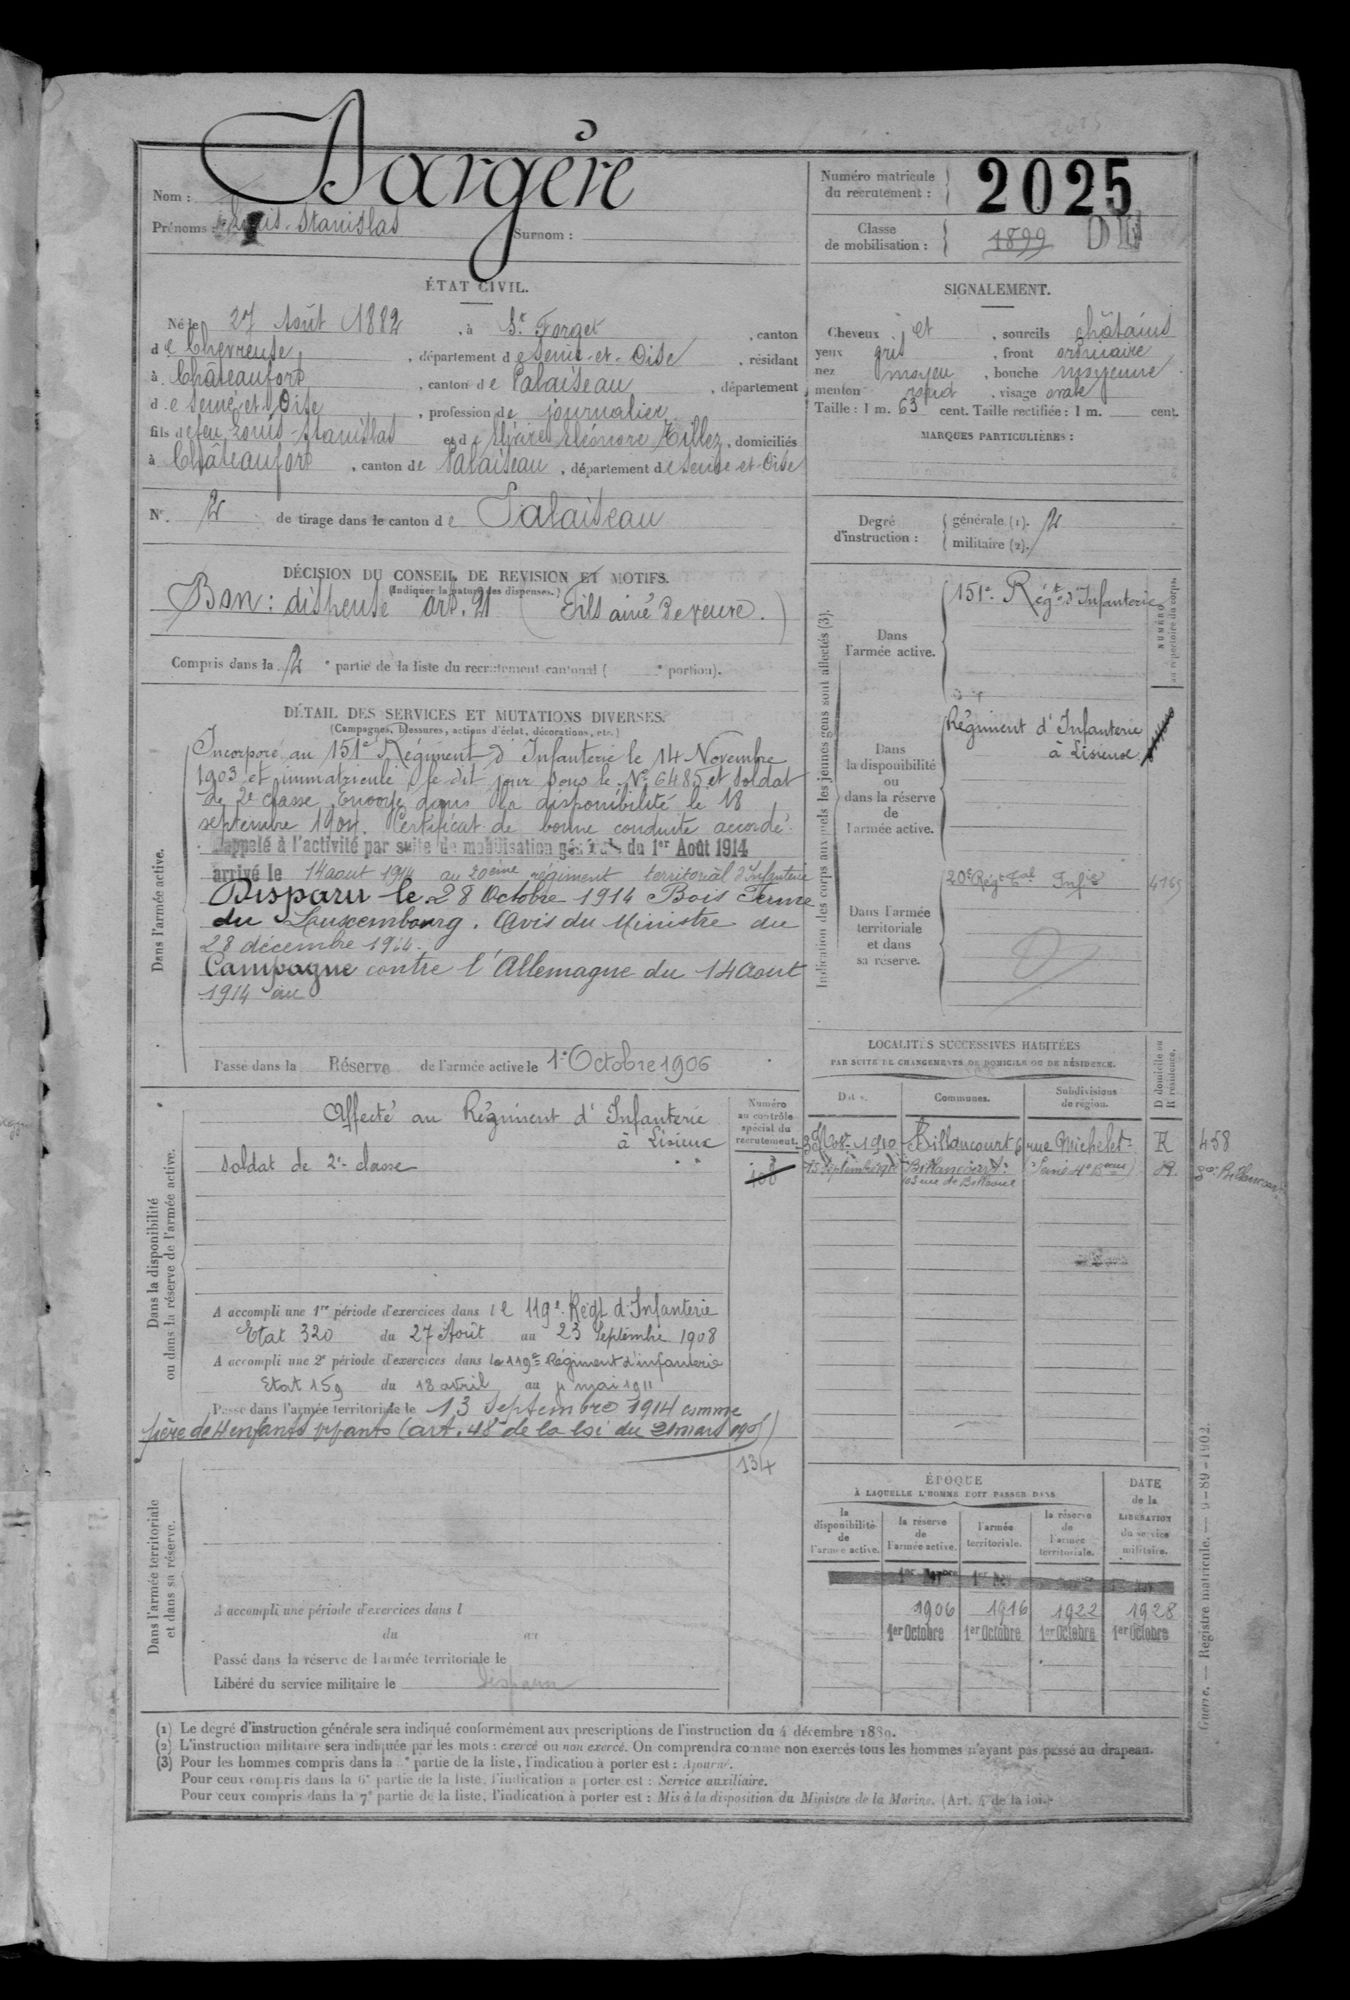 Nom : Dargère
Prénoms : Louis-Stanislas Surnom :
Numéro matricule du recrutement : 2025
Classe de mobilisation : 1899
ÉTAT CIVIL.
Né le 27 Août 1882, à St Forget, canton
de Chevreuse, département de Seine-et-Oise, résidant
à Châteaufort, canton de Palaiseau, département
de Seine-et-Oise, profession de journalier
fils de feu Louis-Stanislas et de Eléonore Tillez, domiciliés
à Châteaufort, canton de Palaiseau, département de Seine-et-Oise
N° 2 de tirage dans le canton de Palaiseau
SIGNALEMENT.
Cheveux et, sourcils châtains
yeux gris, front ordinaire
nez moyen, bouche moyenne
menton rond, visage ovale
Taille : 1 m. 63 cent. Taille rectifiée : 1 m. cent.
MARQUES PARTICULIÈRES :
Degré d'instruction : générale (1). 2
militaire (2).
DÉCISION DU CONSEIL DE REVISION ET MOTIFS.
(Indiquer la nature des dispenses.)
Bon : dispensé art. 21 (Fils aîné de veuve.)
Compris dans la 2e partie de la liste du recrutement cantonal ( e portion).
DÉTAIL DES SERVICES ET MUTATIONS DIVERSES.
(Campagnes, blessures, actions d'éclat, décorations, etc.)
Dans l'armée active.
Incorporé au 151e Régiment d'Infanterie le 14 Novembre
1903 et immatriculé le dit jour sous le N° 6485 et soldat
de 2e classe. Envoyé dans la disponibilité le 18
septembre 1904. Certificat de bonne conduite accordé.
Rappelé à l'activité par suite de mobilisation générale du 1er Août 1914
arrivé le 14 aout 1914 au 20eme régiment territorial d'Infanterie
Disparu le 28 Octobre 1914 Bois Ferme
du Luxembourg. Avis du Ministre du
28 décembre 1914.
Campagne contre l'Allemagne du 14 Aout
1914 au
Passé dans la Réserve de l'armée active le 1er Octobre 1906
Indication des corps auxquels les jeunes gens sont affectés (3).
NUMÉRO au répertoire du corps.
Dans l'armée active.
151e Régt d'Infanterie
Dans la disponibilité ou dans la réserve de l'armée active.
Régiment d'Infanterie
à Lisieux
Dans l'armée territoriale et dans sa réserve.
20e Régt Tal Infie 4165
LOCALITÉS SUCCESSIVES HABITÉES
PAR SUITE DE CHANGEMENTS DE DOMICILE OU DE RÉSIDENCE.
Dates. Communes. Subdivisions de région. D domicile ou R résidence.
1910 Billancourt 6 rue Michelet R 458
15 septembre Billancourt (Seine 4e Beau) R
103 rue de
Dans la disponibilité ou dans la réserve de l'armée active.
Numéro au contrôle spécial du recrutement.
Affecté au Régiment d'Infanterie
à Lisieux
soldat de 2e classe
108
A accompli une 1re période d'exercices dans le 119e Régt d'Infanterie
Etat 320 du 27 Août au 23 Septembre 1908
A accompli une 2e période d'exercices dans le 119e Régiment d'infanterie
Etat 159 du 18 avril au 4 mai 1911
Passé dans l'armée territoriale le 13 Septembre 1914 comme
père de 4 enfants vivants (art. 48 de la loi du 21 mars 1905)
134
Dans l'armée territoriale et dans sa réserve.
A accompli une période d'exercices dans l
du au
Passé dans la réserve de l'armée territoriale le
Libéré du service militaire le Disparu
ÉPOQUE
À LAQUELLE L'HOMME DOIT PASSER DANS
la disponibilité de l'armée active.
la réserve de l'armée active.
l'armée territoriale.
la réserve de l'armée territoriale.
DATE de la LIBÉRATION du service militaire.
1906 1916 1922 1928
1er Octobre 1er Octobre 1er Octobre 1er Octobre
Guerre. — Registre matricule. — 9-89-1902.
(1) Le degré d'instruction générale sera indiqué conformément aux prescriptions de l'instruction du 4 décembre 1889.
(2) L'instruction militaire sera indiquée par les mots : exercé ou non exercé. On comprendra comme non exercés tous les hommes n'ayant pas passé au drapeau.
(3) Pour les hommes compris dans la partie de la liste, l'indication à porter est : Ajourné.
Pour ceux compris dans la 6e partie de la liste, l'indication à porter est : Service auxiliaire.
Pour ceux compris dans la 7e partie de la liste, l'indication à porter est : Mis à la disposition du Ministre de la Marine. (Art. 4 de la loi.)